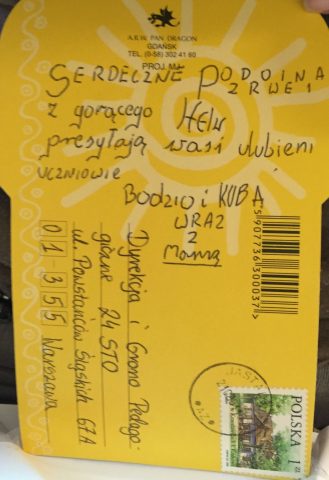 A.R.W. PAN DRAGON
GDAŃSK
TEL. (0-58) 302 41 60
PROJ. M.Ł.
SERDECZNE PODOINA
ZRWE1
z gorącego HELu
przesyłają wasi ulubieni
UCZNIOWIE
Bodzio i KUBA
WRAZ
z
Mamą
5907736300037
Dyrekcja i Grono Pedago-
giczne 24 STO
ul. Powstańców Śląskich 67A
01-355 Warszawa
JASTA
POLSKA
1 zł